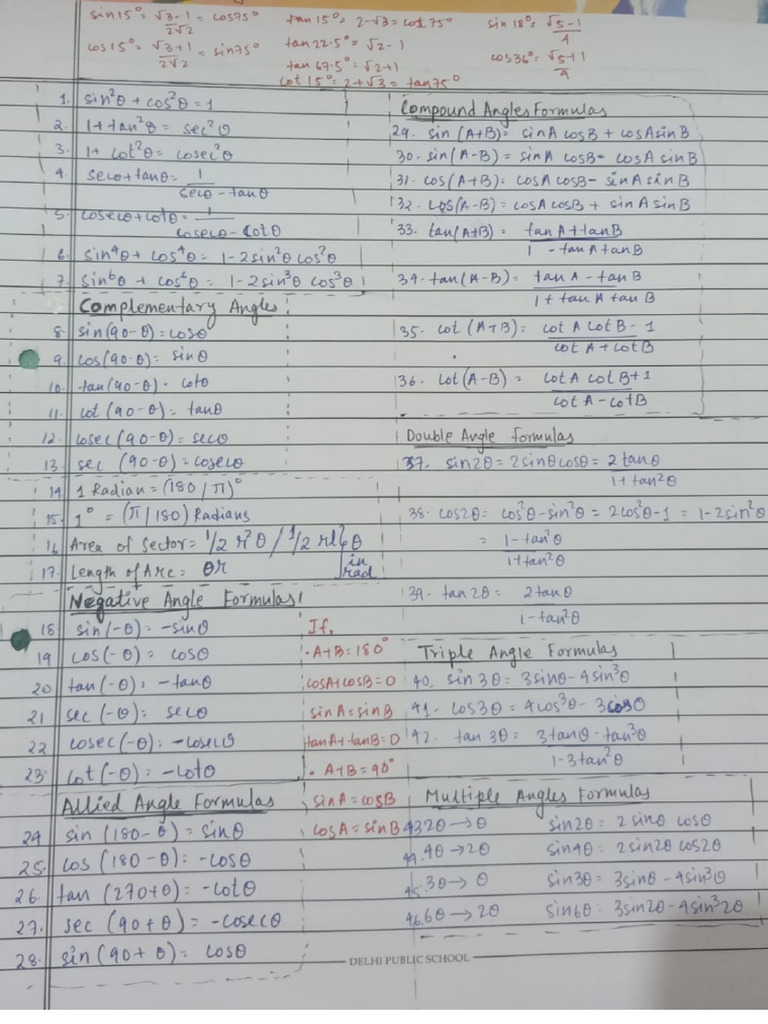 sin15° = √3-1/2√2 = cos75°
cos15° = √3+1/2√2 = sin75°
tan15° = 2-√3 = cot75°
tan22.5° = √2-1
tan67.5° = √2+1
cot15° = 2+√3 = tan75°
sin18° = √5-1/4
cos36° = √5+1/4
1. sin²θ + cos²θ = 1
2. 1+tan²θ = sec²θ
3. 1+ cot²θ = cosec²θ
4. secθ+tanθ = 1/secθ-tanθ
5. cosecθ+cotθ = 1/cosecθ-cotθ
6. sin⁴θ + cos⁴θ = 1-2sin²θ cos²θ
7. sin⁶θ + cos⁶θ = 1-2sin³θ cos³θ
Complementary Angles:
8. sin(90-θ) = cosθ
9. cos(90-θ) = sinθ
10. tan(90-θ) = cotθ
11. cot(90-θ) = tanθ
12. cosec(90-θ) = secθ
13. sec (90-θ) = cosecθ
14. 1 Radian = (180/π)°
15. 1° = (π/180) Radians
16. Area of Sector = 1/2 r²θ / 1/2 rl
17. Length of Arc = θr
θ in rad
Negative Angle Formulas:
18 sin(-θ) = -sinθ
19 cos(-θ) = cosθ
20 tan(-θ) = -tanθ
21 sec(-θ) = secθ
22 cosec(-θ) = -cosecθ
23. cot(-θ) = -cotθ
Allied Angle Formulas
24 sin (180-θ) = sinθ
25. cos (180-θ) = -cosθ
26. tan (270+θ) = -cotθ
27. sec (90+θ) = -cosecθ
28. sin(90+θ) = cosθ
If,
• A+B = 180°
cosA+cosB = 0
sinA = sinB
tanA+tanB = 0
• A+B = 90°
sinA = cosB
cosA = sinB
Compound Angles Formulas
29. sin (A+B) = sinA cosB + cosAsinB
30. sin(A-B) = sinA cosB - cosA sinB
31. cos(A+B) = cosA cosB - sinA sinB
32. cos(A-B) = cosA cosB + sinA sinB
33. tan(A+B) = tanA+tanB/1-tanAtanB
34. tan(A-B) = tanA-tanB/1+tanA tanB
35. cot (A+B) = cot A cot B - 1/cot A+cotB
36. cot(A-B) = cotA cotB+1/cotA-cotB
Double Angle formulas
37. sin2θ = 2sinθcosθ = 2tanθ/1+tan²θ
38. cos2θ = cos²θ-sin²θ = 2cos²θ-1 = 1-2sin²θ
= 1-tan²θ/1+tan²θ
39. tan2θ = 2tanθ/1-tan²θ
Triple Angle Formulas
40. sin3θ = 3sinθ-4sin³θ
41. cos3θ = 4cos³θ-3cosθ
42. tan 3θ = 3tanθ-tan³θ/1-3tan²θ
Multiple Angles Formulas
43. 2θ → θ sin2θ = 2 sinθ cosθ
44. 4θ → 2θ sin4θ = 2sin2θ cos2θ
45. 3θ → θ sin3θ = 3sinθ-4sin³θ
46. 6θ → 2θ sin6θ = 3sin2θ-4sin³2θ
DELHI PUBLIC SCHOOL